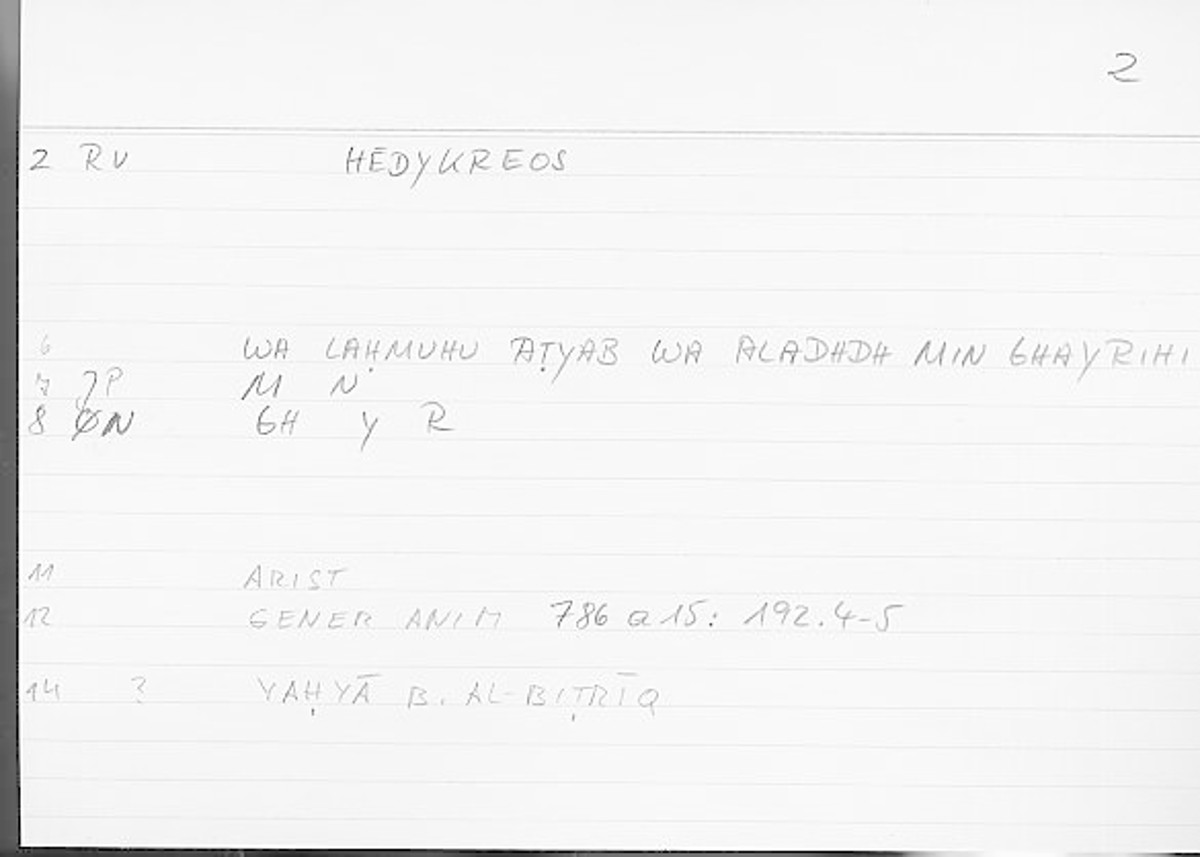 2
2 RV HEDYKREOS
6 WA LAḤMUHU AṬYAB WA ALADHDH MIN GHAYRIHI
7 JP M N
8 ØN GH Y R
11 ARIST
12 GENER ANIM 786 a 15: 192.4-5
14 ? YAḤYĀ B. AL-BIṬRĪQ